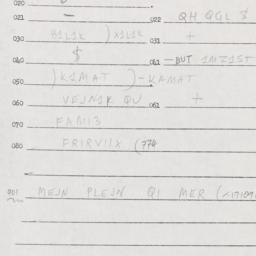 020
021 — 022 QH QGL $
030 B1L1K )X1L1K 031 +
040 $ 041 —BUT 1MZ1ST
050 )K1MAT )-KAMAT
060 VEJN1K QU 061 +
070 FAMI3
080 FRIRVIIX (774
001 MEJN PLEJN QI MER